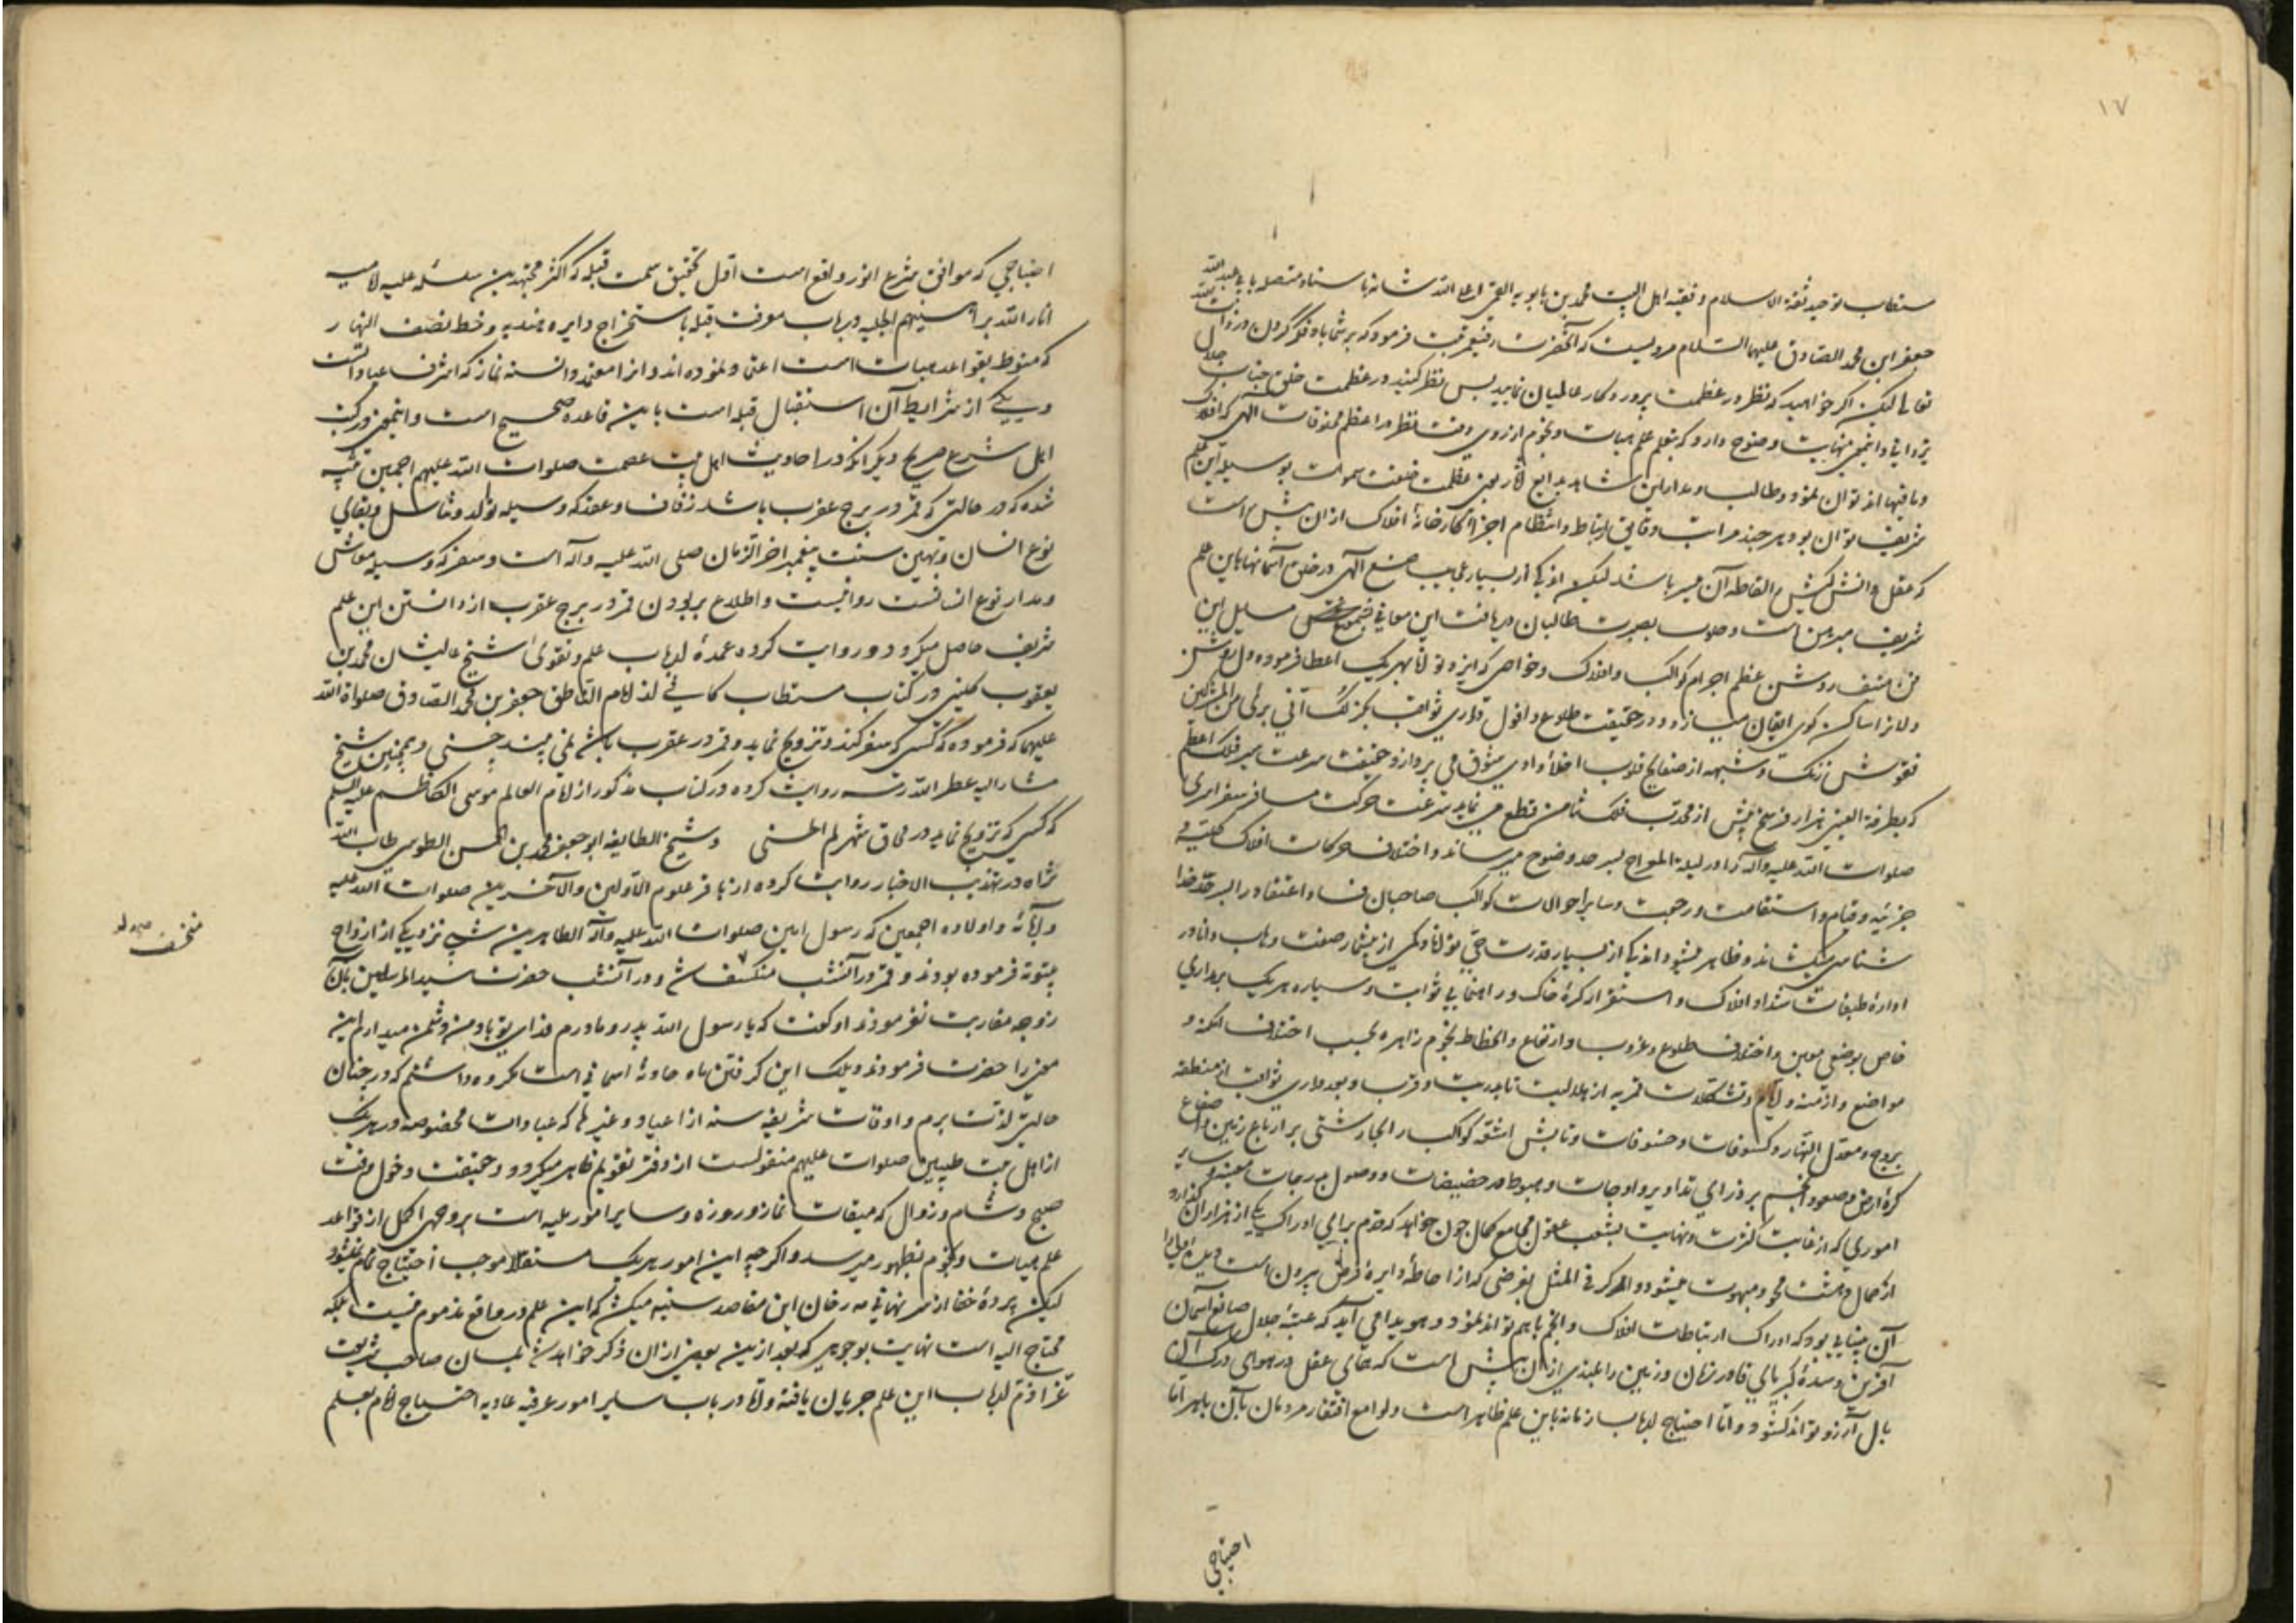 ۱۷
مستطاب توحید ثقة الاسلام و فقیه اهل البیت محمد بن بابویه القمی اعلا الله شانه باسناد متصله بابی عبد الله
جعفر ابن محمد الصادق علیهما السلام مرویست که آنحضرت فرمود که بر شما باد فکر کردن در ذات
تعالی لیکن اگر خواهید که نظر در عظمت پروردگار عالمیان نمایید پس نظر کنید در عظمت خلق جناب جلال
و اینمعنی نهایت وضوح دارد که بتعلم علم هیأت و نجوم از روی دقت نظر در اعظم مخلوقات الهی که افلاک
و ما فیها اند توان نمود و طالب بدایع عظمت صنعت سموات بوسیله این علم
شریف توان بود هر چند مراتب دقایق ارتباط و انتظام اجزا کارخانهٔ افلاک از ان بیش است
که عقل دانش باشد لیکن اندکی از بسیار عجایب صنع الهی در خلق آسمانها باین علم
شریف مبرهن است و بصیرت طالبان دریافت این معانی
فن روشن عظم اجرام کواکب و افلاک و خواص که ایزد توانا بهر یک اعطا فرموده
ساکن کوی ایقان میسازد و در حقیقت طلوع و افول دراری ثواقب
نقوش زنگ شبهه از صفایح قلوب وادی شوق می پردازد و حقیقت سرعت سیر فلک اعظم
که بطرفة العین هزار فرسخ بیش از محدب فلک ثامن قطع می نماید سرعت حرکت مسافر سفر اسری
صلوات الله علیه و آله را در لیلة المعراج بسرحد وضوح میرساند و اختلاف حرکات افلاک کلیه و
جزئیه و قیام و استقامت و رجعت و سایر احوالات کواکب صاحبان فساد اعتقاد را بسرحد خدا
شناسی میکشاند و ظاهر میشود اندکی از بسیار قدرت حی توانا و کمی از بیشمار صنعت وهاب دانا در
ادارهٔ طبقات شداد افلاک و استقرار کرهٔ خاک و راهنمایی ثوابت و سیاره هر یک بمداری
خاص بوضعی معین و اختلاف طلوع و غروب و ارتفاع و انحطاط نجوم زاهره بحسب اختلاف امکنه و
مواضع و ازمنه و ایام و تشکلات قمریه از هلالیت تا بدریت و قرب و بعد دراری ثواقب از منطقه
بروج و معدل النهار و کسوفات و خسوفات و تابش اشعهٔ کواکب بر ارباع زمین و اصقاع
کرهٔ ارض و صعود انجم بر ذرای تداویر و اوجات و هبوط در حضیضات و وصول بدرجات معینه و سایر
اموری که از غایت کثرت و نهایت تشعب عقول مجامع کمال چون خواهد که قدم برامی ادراک یکی از هزاران گذارد
از کمال دهشت محو و مبهوت میشود و اگر فی المثل بفرضی که از احاطهٔ دایرهٔ فرض بیرون است
آن بینایی بود که ادراک ارتباطات افلاک و انجم باهم تواند نمود و هویدا می آید که عتبهٔ جلال صانع آسمان
آفرین و سدهٔ کبریای قادر زمان و زمین را بلندی از ان بیش است که همای عقل در هوای درک آن
بال آرزو تواند گشود و اما احتیاج ارباب زمانه باین علم ظاهر است و لوامع افتقار مردمان بآن باهر اما
احتیاجی
احتیاجی که موافق شرع انور واقع است اول تحقیق سمت قبله که اکثر مجتهدین سلسله علیه امامیه
انار الله براهینهم الجلیه در باب معرفت قبله باستخراج دایره هندیه و خط نصف النهار
که منوط بقواعد هیأت است اعتماد نموده اند و انرا معتمد دانسته نماز که اشرف عبادات
و یکی از شرایط آن استقبال قبله است باین قاعده صحیح است و اینمعنی در کتب
اهل شرع صریح دیگر آنکه در احادیث اهل بیت عصمت صلوات الله علیهم اجمعین
شده که در حالتی که قمر در برج عقرب باشد زفاف و عقد که وسیله تولد و تناسل و بقای
نوع انسان و بهین سنت پیغمبر اخر الزمان صلی الله علیه و آله است و سفر که وسیله معاش
و مدار نوع انسانست روا نیست و اطلاع بر بودن قمر در برج عقرب از دانستن این علم
شریف حاصل میگردد و روایت کرده عمدهٔ ارباب علم و تقوی شیخ عالیشان محمد بن
یعقوب کلینی در کتاب مستطاب کافی از امام الناطق جعفر بن محمد الصادق صلواة الله
علیهما که فرموده که کسی که سفر کند و تزویج نماید و قمر در عقرب باشد نمی بیند حسنی و همچنین شیخ
مشار الیه عطر الله رمسه روایت کرده در کتاب مذکور از امام العالم موسی الکاظم علیه السلم
که کسی که تزویج نماید در محاق شهر لم الحسنی و شیخ الطایفه ابو جعفر محمد بن الحسن الطوسی طاب الله
ثراه در تهذیب الاخبار روایت کرده از باقر علوم الاولین و الآخرین صلوات الله علیه
و آبائه و اولاده اجمعین که رسول امین صلوات الله علیه و آله الطاهرین شبی نزد یکی از ازواج
بیتوته فرموده بودند و قمر در آنشب منکسف شد و در آنشب حضرت سید المرسلین بآن
زوجه مقاربت نفرمودند او گفت که یا رسول الله پدر و مادرم فدای تو باد
حضرت فرمودند ویلک این گرفتن ماه حادثهٔ اسمانی است مکروه داشتم که در چنان
حالتی لذت برم و اوقات شریفه سنه از اعیاد و غیرها که عبادات مخصوصه در هر یک
از اهل بیت طیبین صلوات علیهم منقولست از دفتر تقویم ظاهر میگردد و حقیقت دخول وقت
صبح و شام و زوال که میقات نماز و روزه و سایر امور ملیه است بروجهی اکمل از قواعد
علم هیأت و نجوم بظهور میرسد و اگرچه این امور هر یک مستقلا موجب احتیاج تمام میشود
لیکن پردهٔ خفا از سر نهانی مه رخان این مقاصد سنیه میکشد که این علم در واقع مذموم نیست بلکه
محتاج الیه است نهایت بوجوهی که بعد ازین بعضی از ان ذکر خواهد شد بلسان صاحب شریعت
غرا ذم ارباب این علم جریان یافته و اما در باب سایر امور عرفیه عادیه احتیاج انام بعلم
منخسف